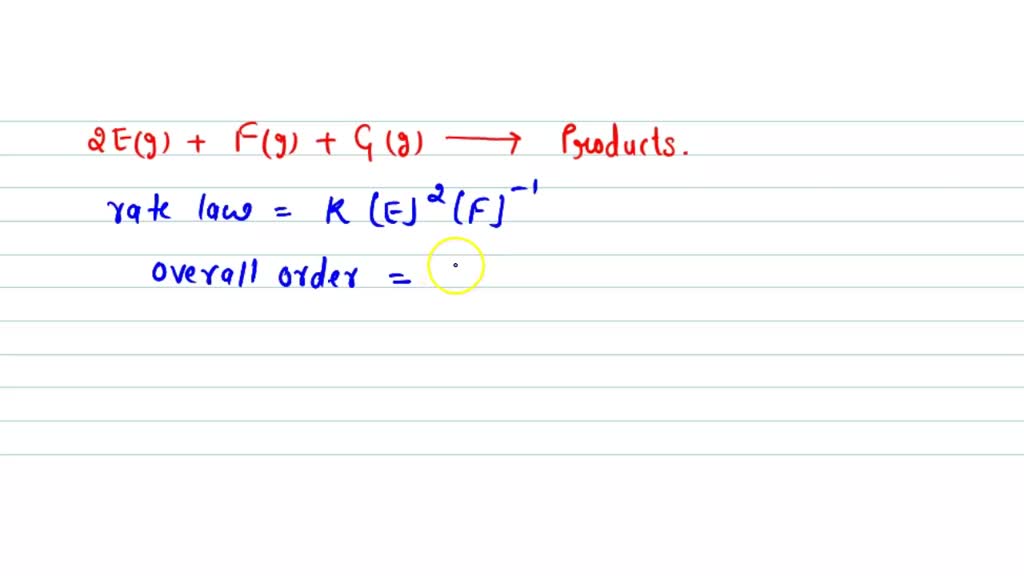 2E(g) + F(g) + G(g) ⟶ Products.
rate law = K (E]² (F]⁻¹
overall order =